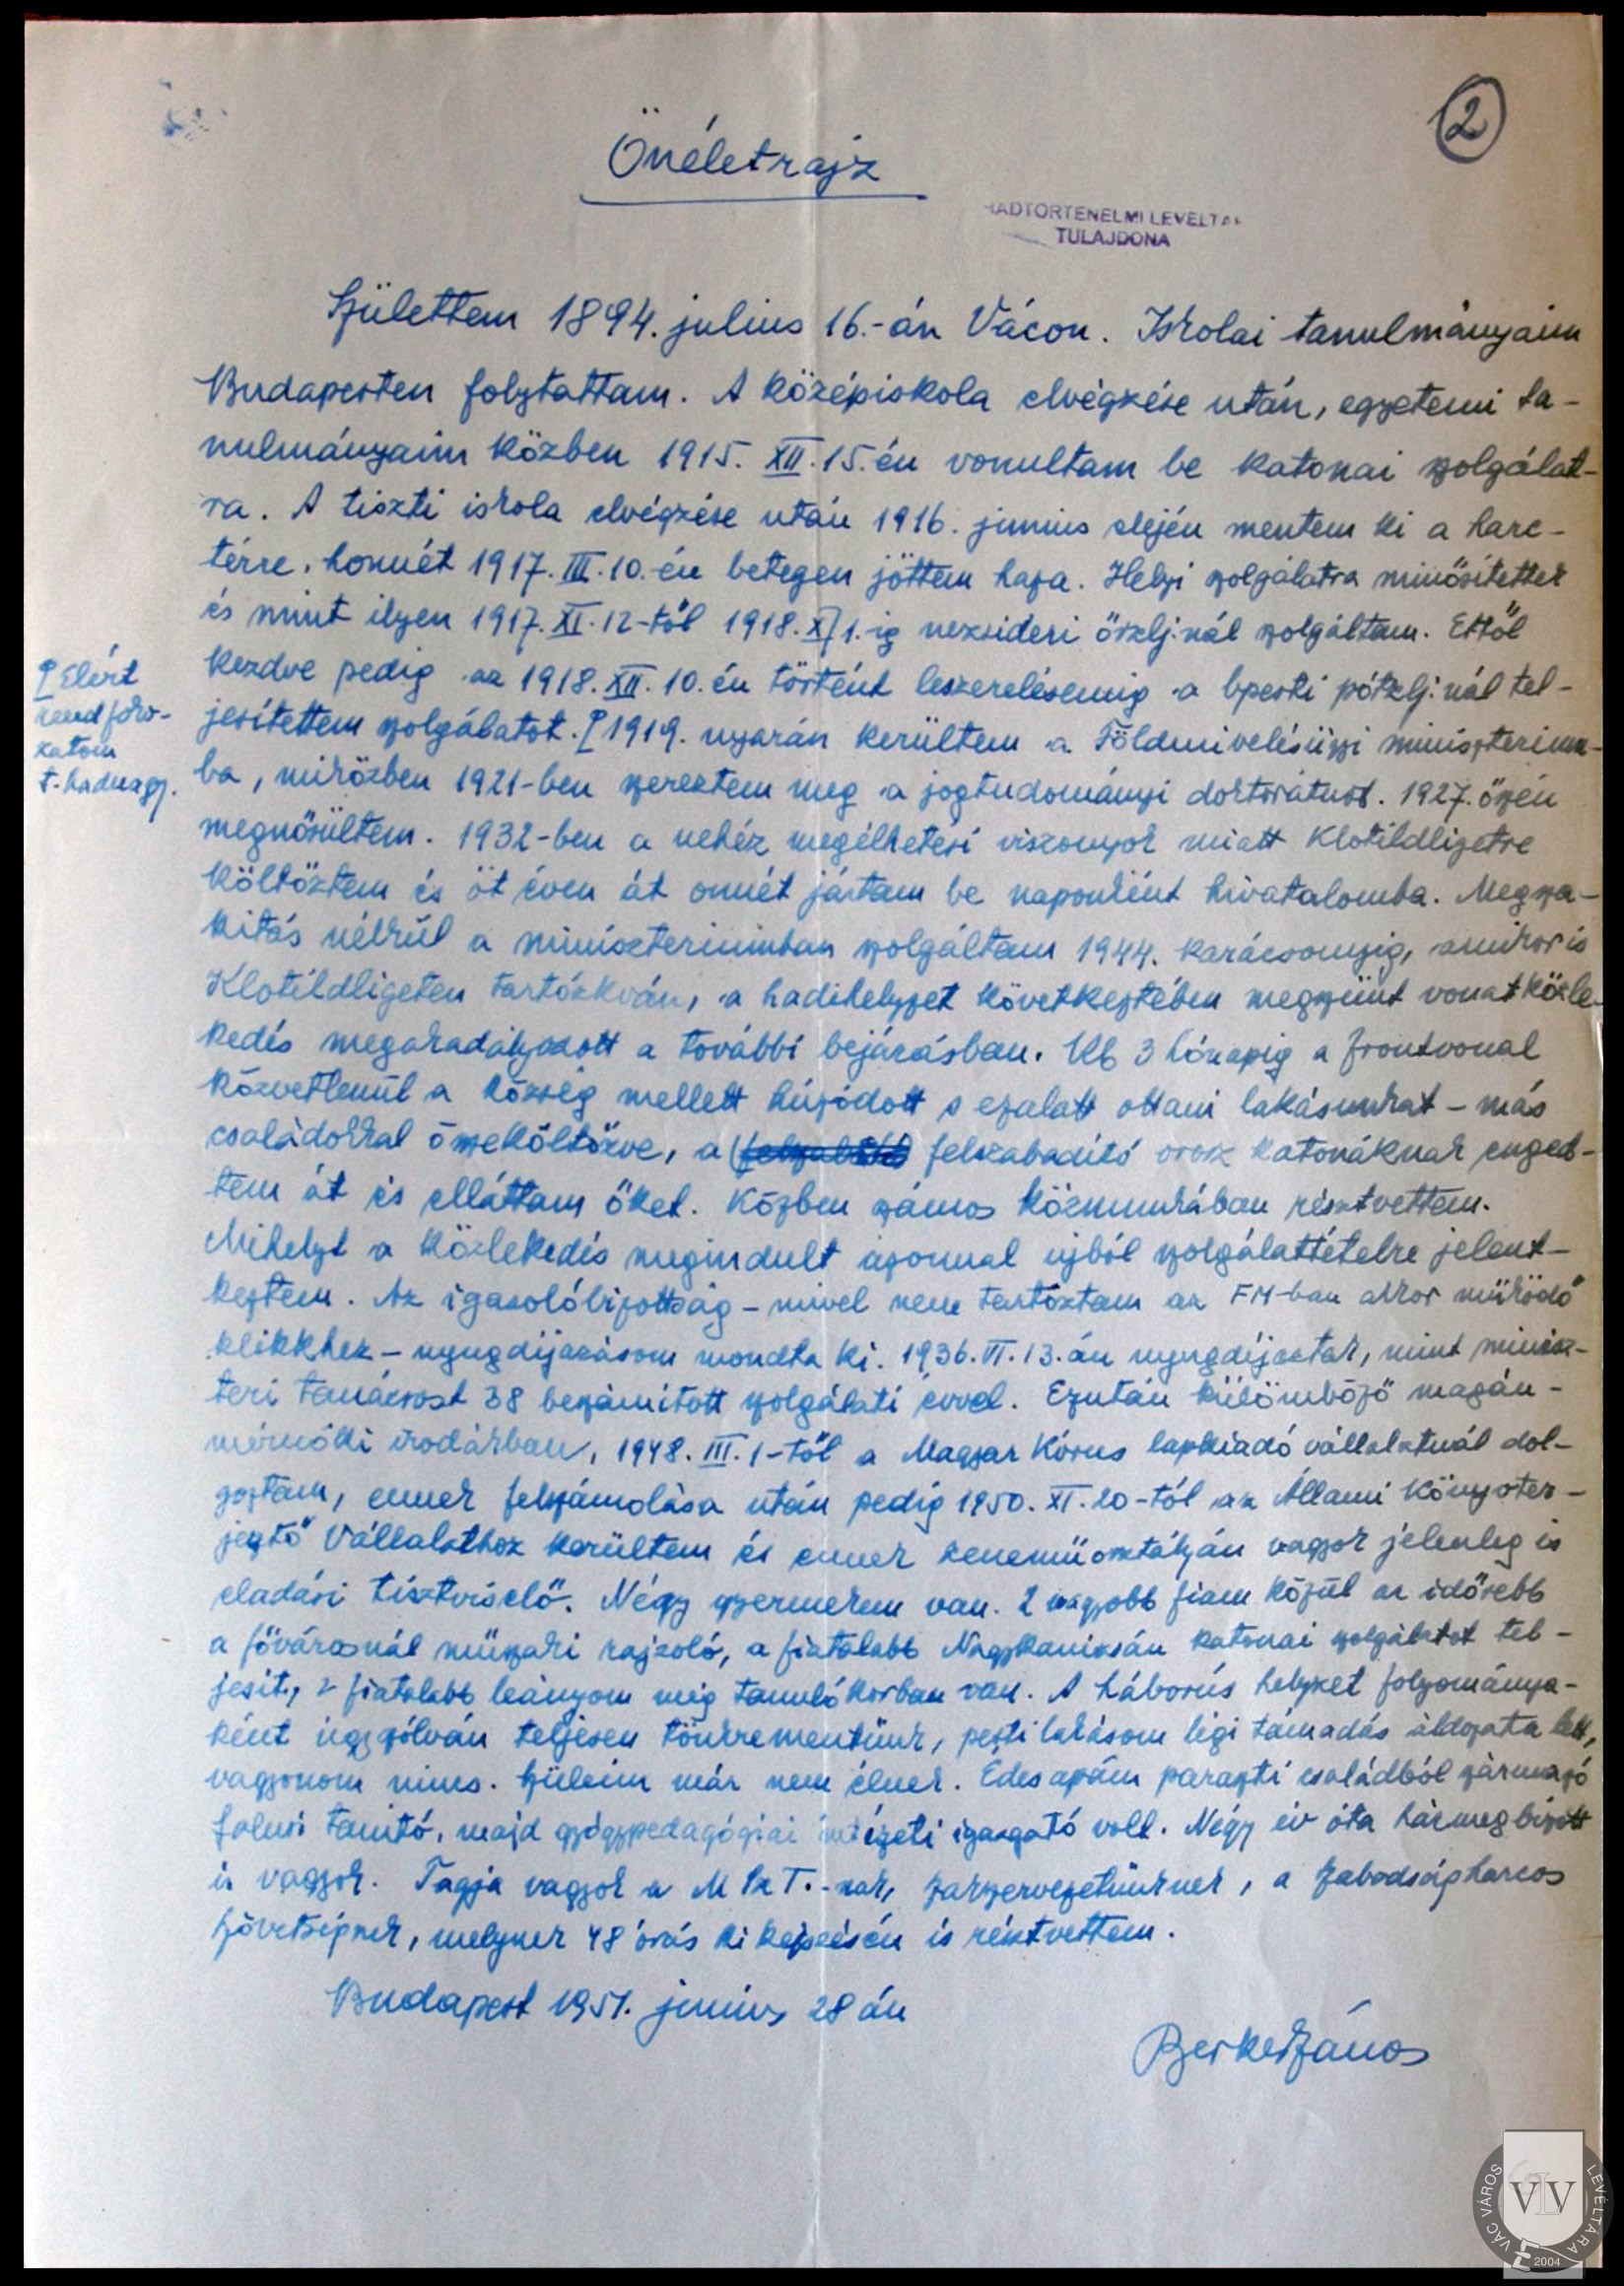 2
Önéletrajz
HADTÖRTÉNELMI LEVÉLTÁR
TULAJDONA
Születtem 1894. julius 16.-án Vácon. Iskolai tanulmányaim
Budapesten folytattam. A középiskola elvégzése után, egyetemi ta-
nulmányaim közben 1915. XII. 15.én vonultam be katonai szolgálat-
ra. A tiszti iskola elvégzése után 1916. junius elején mentem ki a harc-
térre, honnét 1917. III. 10.-én betegen jöttem haza. Helyi szolgálatra minősítettek
és mint ilyen 1917. XI. 12-től 1918. X. 1.ig nezsideri őrzlj.nál szolgáltam. Ettől
kezdve pedig az 1918. XII. 10.én történt leszerelésemig a bpesti pótzlj.nál tel-
jesítettem szolgálatot. 1919. nyarán kerültem a Földmivelésügyi miniszterium-
ba, miközben 1921-ben szereztem meg a jogtudományi doktorátust. 1927. őszén
megnősültem. 1932-ben a nehéz megélhetési viszonyok miatt Klotildligetre
költöztem és öt éven át onnét jártam be naponként hivatalomba. Megsza-
kitás nélkül a miniszteriumban szolgáltam 1944. karácsonyig, amikor is
Klotildligeten tartózkodván, a hadihelyzet következtében megszünt vonatközle-
kedés megakadályozott a további bejárásban. Kb 3 hónapig a frontvonal
közvetlenül a község mellett húzódott s ezalatt ottani lakásunkat – más
családokkal összeköltözve, a felszabadító orosz katonáknak enged-
tem át és elláttam őket. Közben számos közmunkában résztvettem.
Mihelyt a közlekedés megindult azonnal ujból szolgálattételre jelent-
keztem. Az igazolóbizottság – mivel nem tartoztam az FM-ban akkor müködő
klikkhez – nyugdijazásom mondta ki. 1936. VI. 13.án nyugdíjaztak, mint minisz-
teri tanácsost 38 beszámitott szolgálati évvel. Ezután külömböző magán-
mérnöki irodákban, 1948. III. 1-től a Magyar Kórus lapkiadó vállalatnál dol-
goztam, ennek felszámolása után pedig 1950. XI. 20-tól az Állami Könyvter-
jesztő Vállalathoz kerültem és ennek zenemüosztályán vagyok jelenleg is
eladási tisztviselő. Négy gyermekem van. 2 nagyobb fiam közül az idősebb
a fővárosnál müszaki rajzoló, a fiatalabb Nagykanizsán katonai szolgálatot tel-
jesit, 2 fiatalabb leányom még tanulókorban van. A háborús helyzet folyománya-
ként úgyszólván teljesen tönkrementünk, pesti lakásom légi támadás áldozata lett,
vagyonom nincs. Szüleim már nem élnek. Édesapám paraszti családból származó
falusi tanító, majd gyógypedagógiai intézeti igazgató volt. Négy év óta házmegbizott
is vagyok. Tagja vagyok a M Sz T.-nak, szakszervezetünknek, a Szabadságharcos
Szövetségnek, melynek 48 órás kiképzésén is résztvettem.
Elért
rendfoko-
zatom
t. hadnagy.
Budapest 1951. junius 28 án
Berkes János
VÁC VÁROS LEVÉLTÁRA
VLV
2004